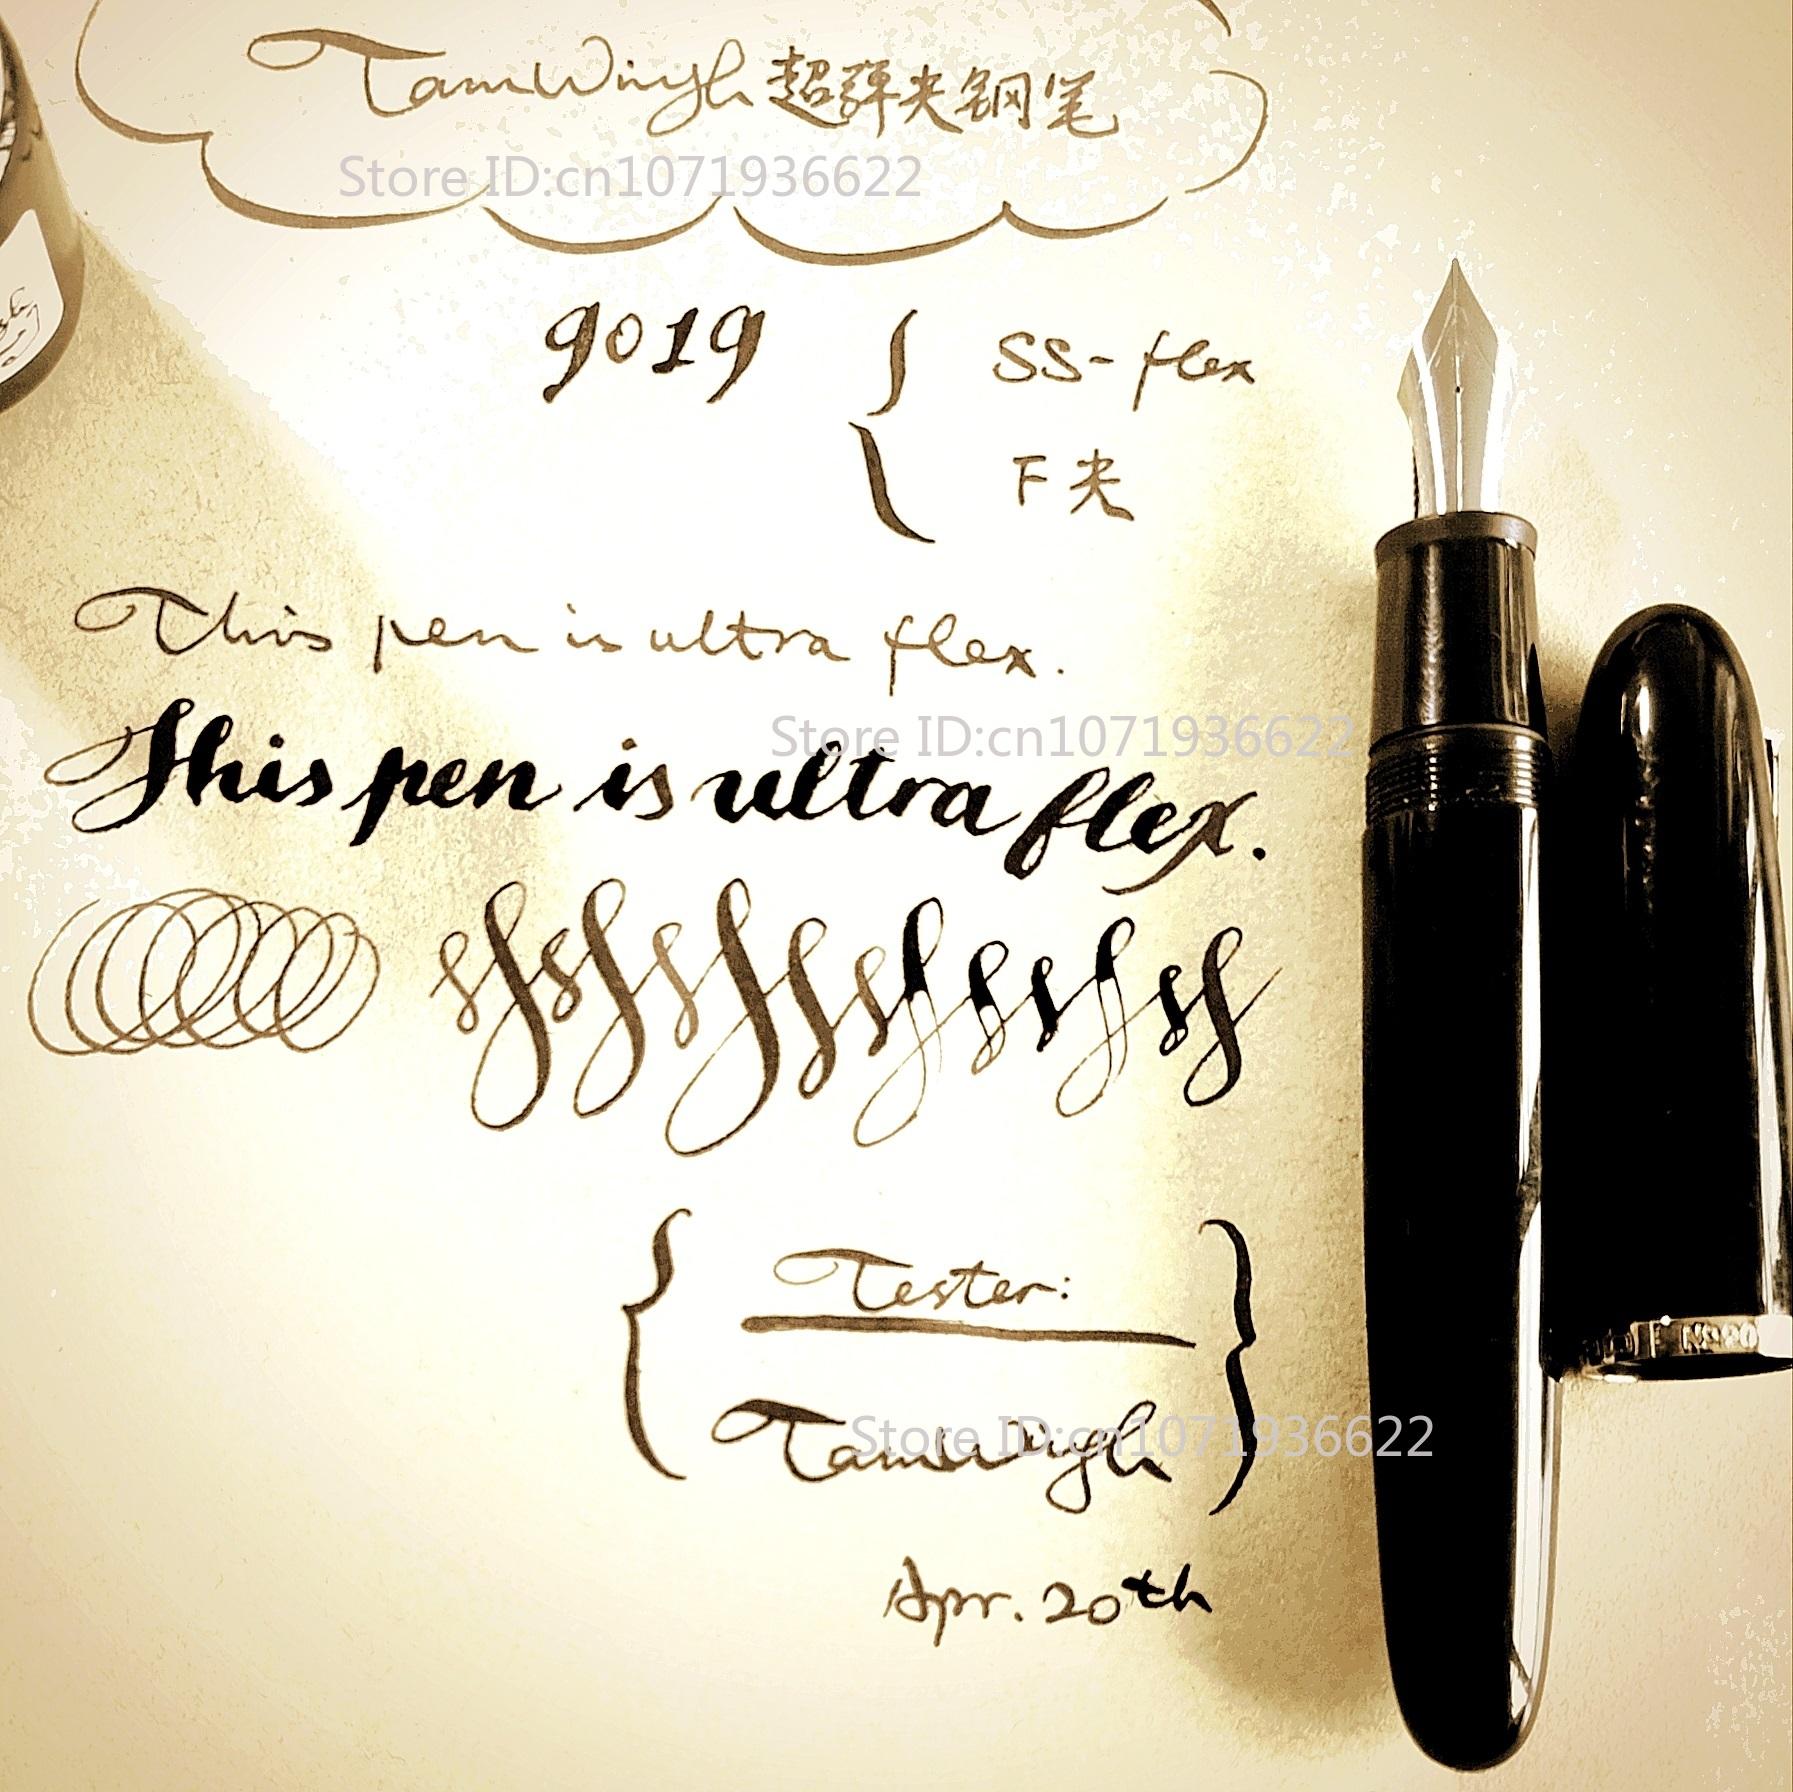 TamWingh 超弹尖钢笔
Store ID:cn1071936622
9019 { SS-flex
F尖
This pen is ultra flex.
Store ID:cn1071936622
This pen is ultra flex.
Tester:
TamWingh
Store ID:cn1071936622
Apr. 20th